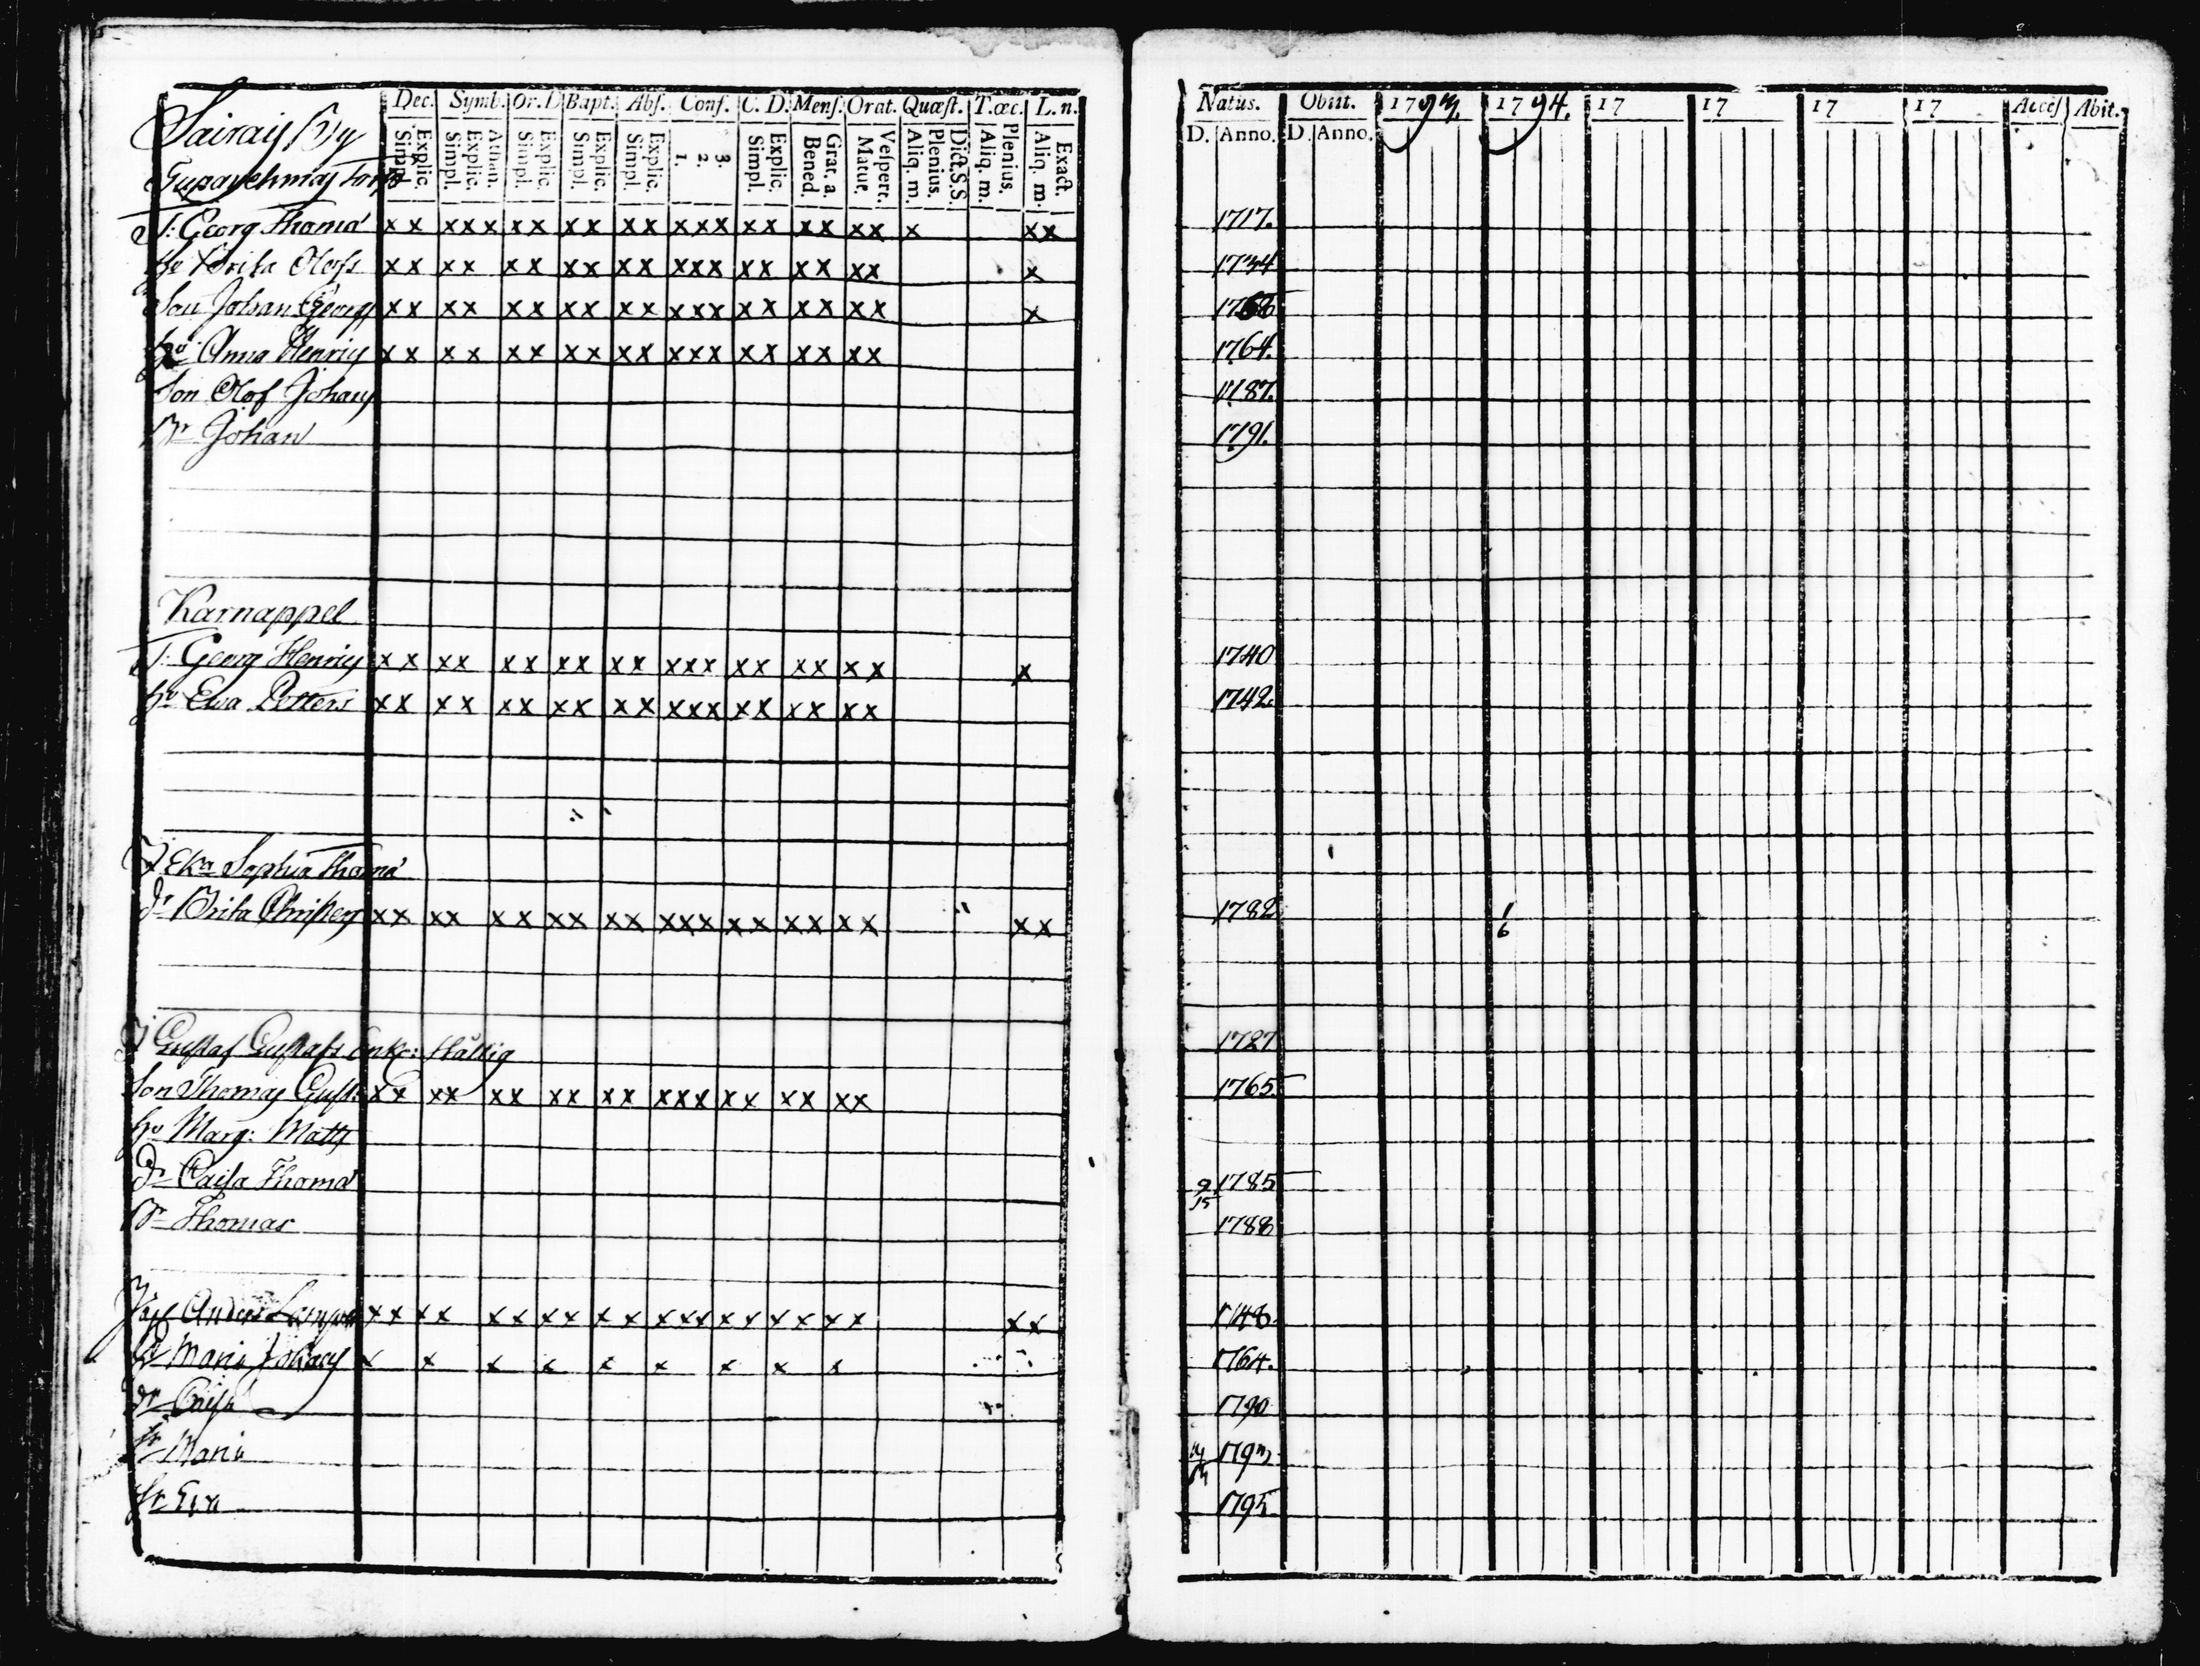 Dec. Symb. Or. D. Bapt. Abs. Conf. C. D. Mens. Orat. Quæst. T. œc. L. n.
Simpl. Explic. Simpl. Explic. Athan. Simpl. Explic. Simpl. Explic. Simpl. Explic. 1. 2. 3. Simpl. Explic. Bened. Grat. a. Matut. Vespert. Aliq. m. Plenius. Dict. S. S. Aliq. m. Plenius. Aliq. m. Exact.
Natus. Obiit. 1793. 1794. 17 17 17 17 Access Abit.
D. Anno. D. Anno.
Sairais By
Torp
T: Georg Thoma x x x x x x x x x x x x x x x x x x x x x x x 1717.
Brita Olofs x x x x x x x x x x x x x x x x x x x x 1734
Son Johan Georg x x x x x x x x x x x x x x x x x x x x 1768
hu Anna Henrics x x x x x x x x x x x x x x x x x x x 1764.
Son Olof Johans 1787.
Br Johan 1791.
Karnappel
T: Georg Henrics x x x x x x x x x x x x x x x x x x x x 1740
hu Ewa Petters x x x x x x x x x x x x x x x x x x x 1742.
Eka Sophia Thoma
dr Brita Christers x x x x x x x x x x x x x x x x x x x x x 1782 1/6
Gustaf Gustafs Enka: fattig 1727
Son Thomas Gust x x x x x x x x x x x x x x x x x x x 1765
hu Marg: Matts
dr Caisa Thoma 9/15 1785
Br Thomas 1788
Anders x x x x x x x x x x x x x x x x x x x x x 1748
Maria Johans x x x x x x x x x 1764.
dr Caisa 1790
Sr Maria 1793
Sr Eva 1795